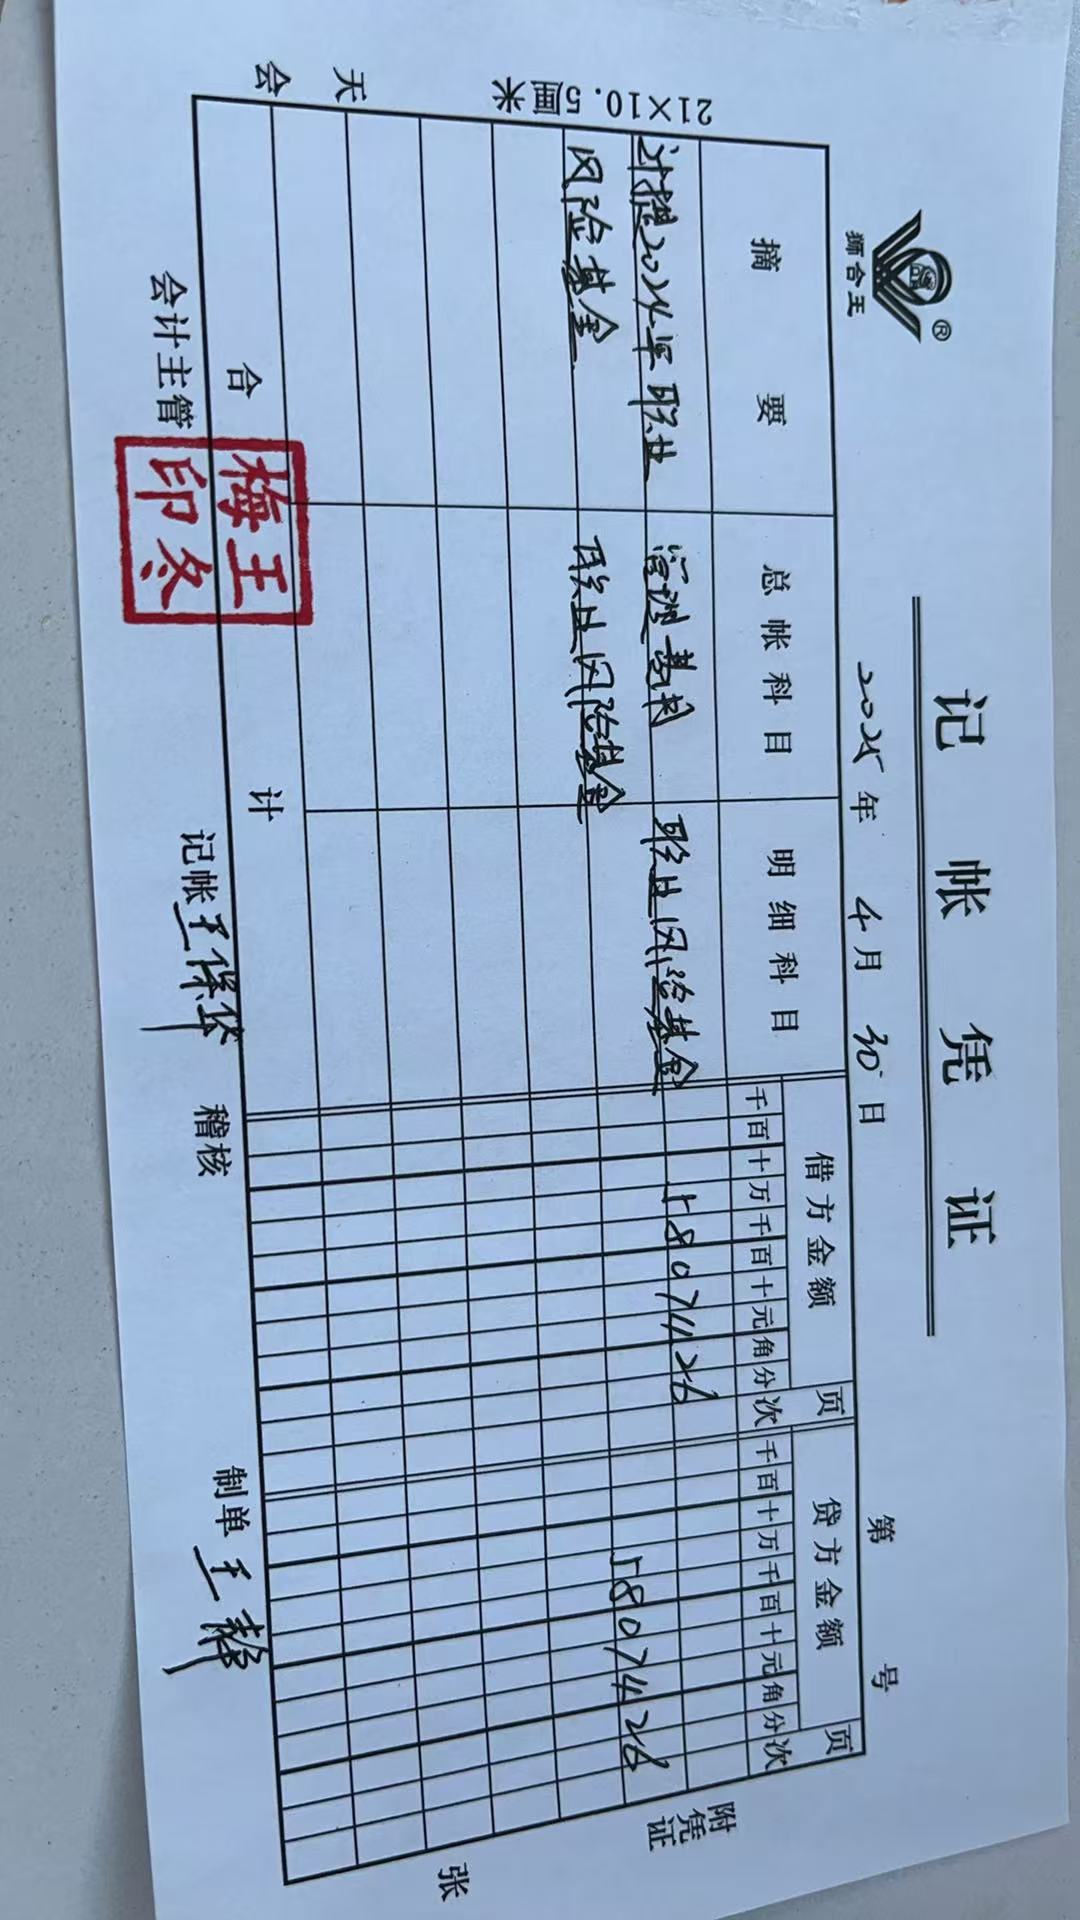 狮合王 ®
记帐凭证
2025年 4月 30日 第 号
摘要 总帐科目 明细科目 借方金额 页次 贷方金额 页次
千百十万千百十元角分 千百十万千百十元角分
计提2024年职业 管理费用 职业风险基金 5807426
风险基金 职业风险基金 5807426
合计
会计主管 记帐 王保华 稽核 制单 王静
王冬梅印
附凭证 张
天
会
21×10.5厘米